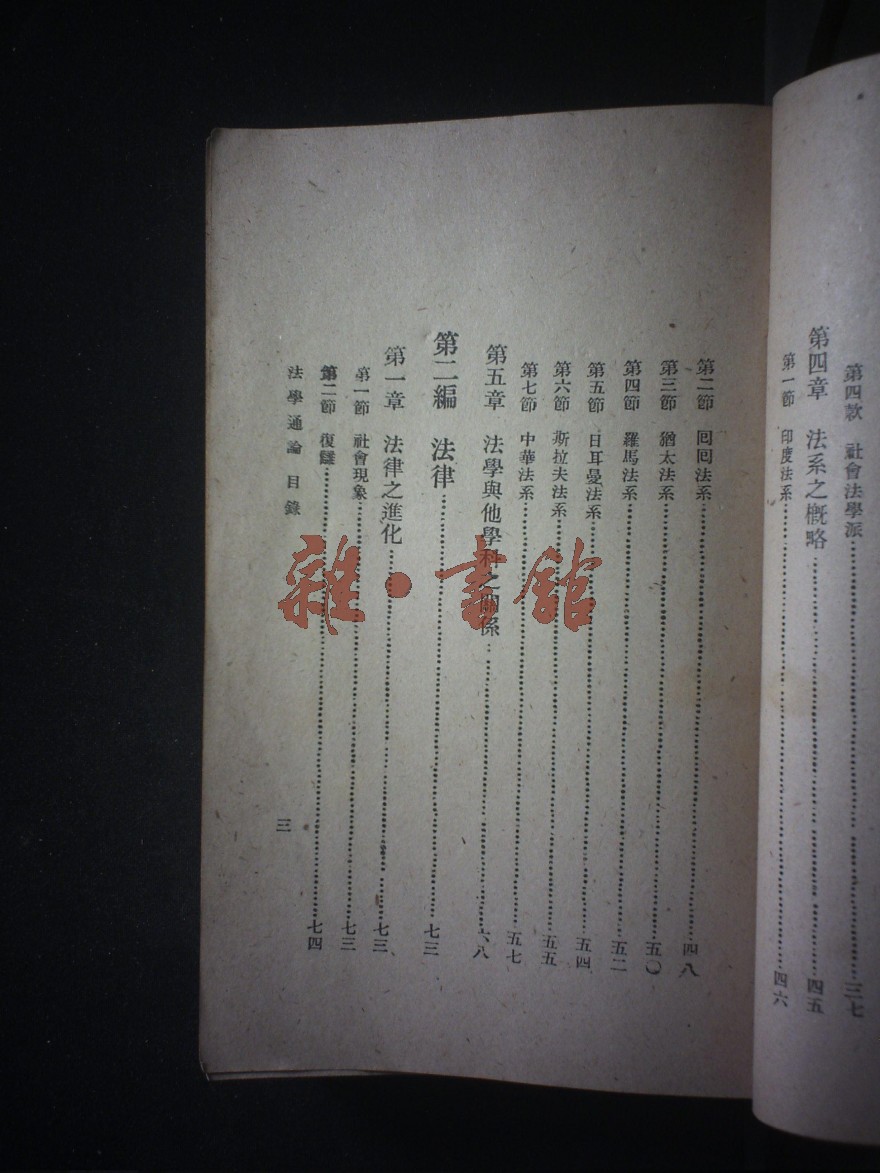 第四款　社會法學派……三七
第四章　法系之概略……四五
第一節　印度法系……四六
第二節　回回法系……四八
第三節　猶太法系……五〇
第四節　羅馬法系……五二
第五節　日耳曼法系……五四
第六節　斯拉夫法系……五五
第七節　中華法系……五七
第五章　法學與他學科之關係……六八
第二編　法律……七三
第一章　法律之進化……七三
第一節　社會現象……七三
第二節　復讎……七四
法學通論　目錄
三
雜·書館